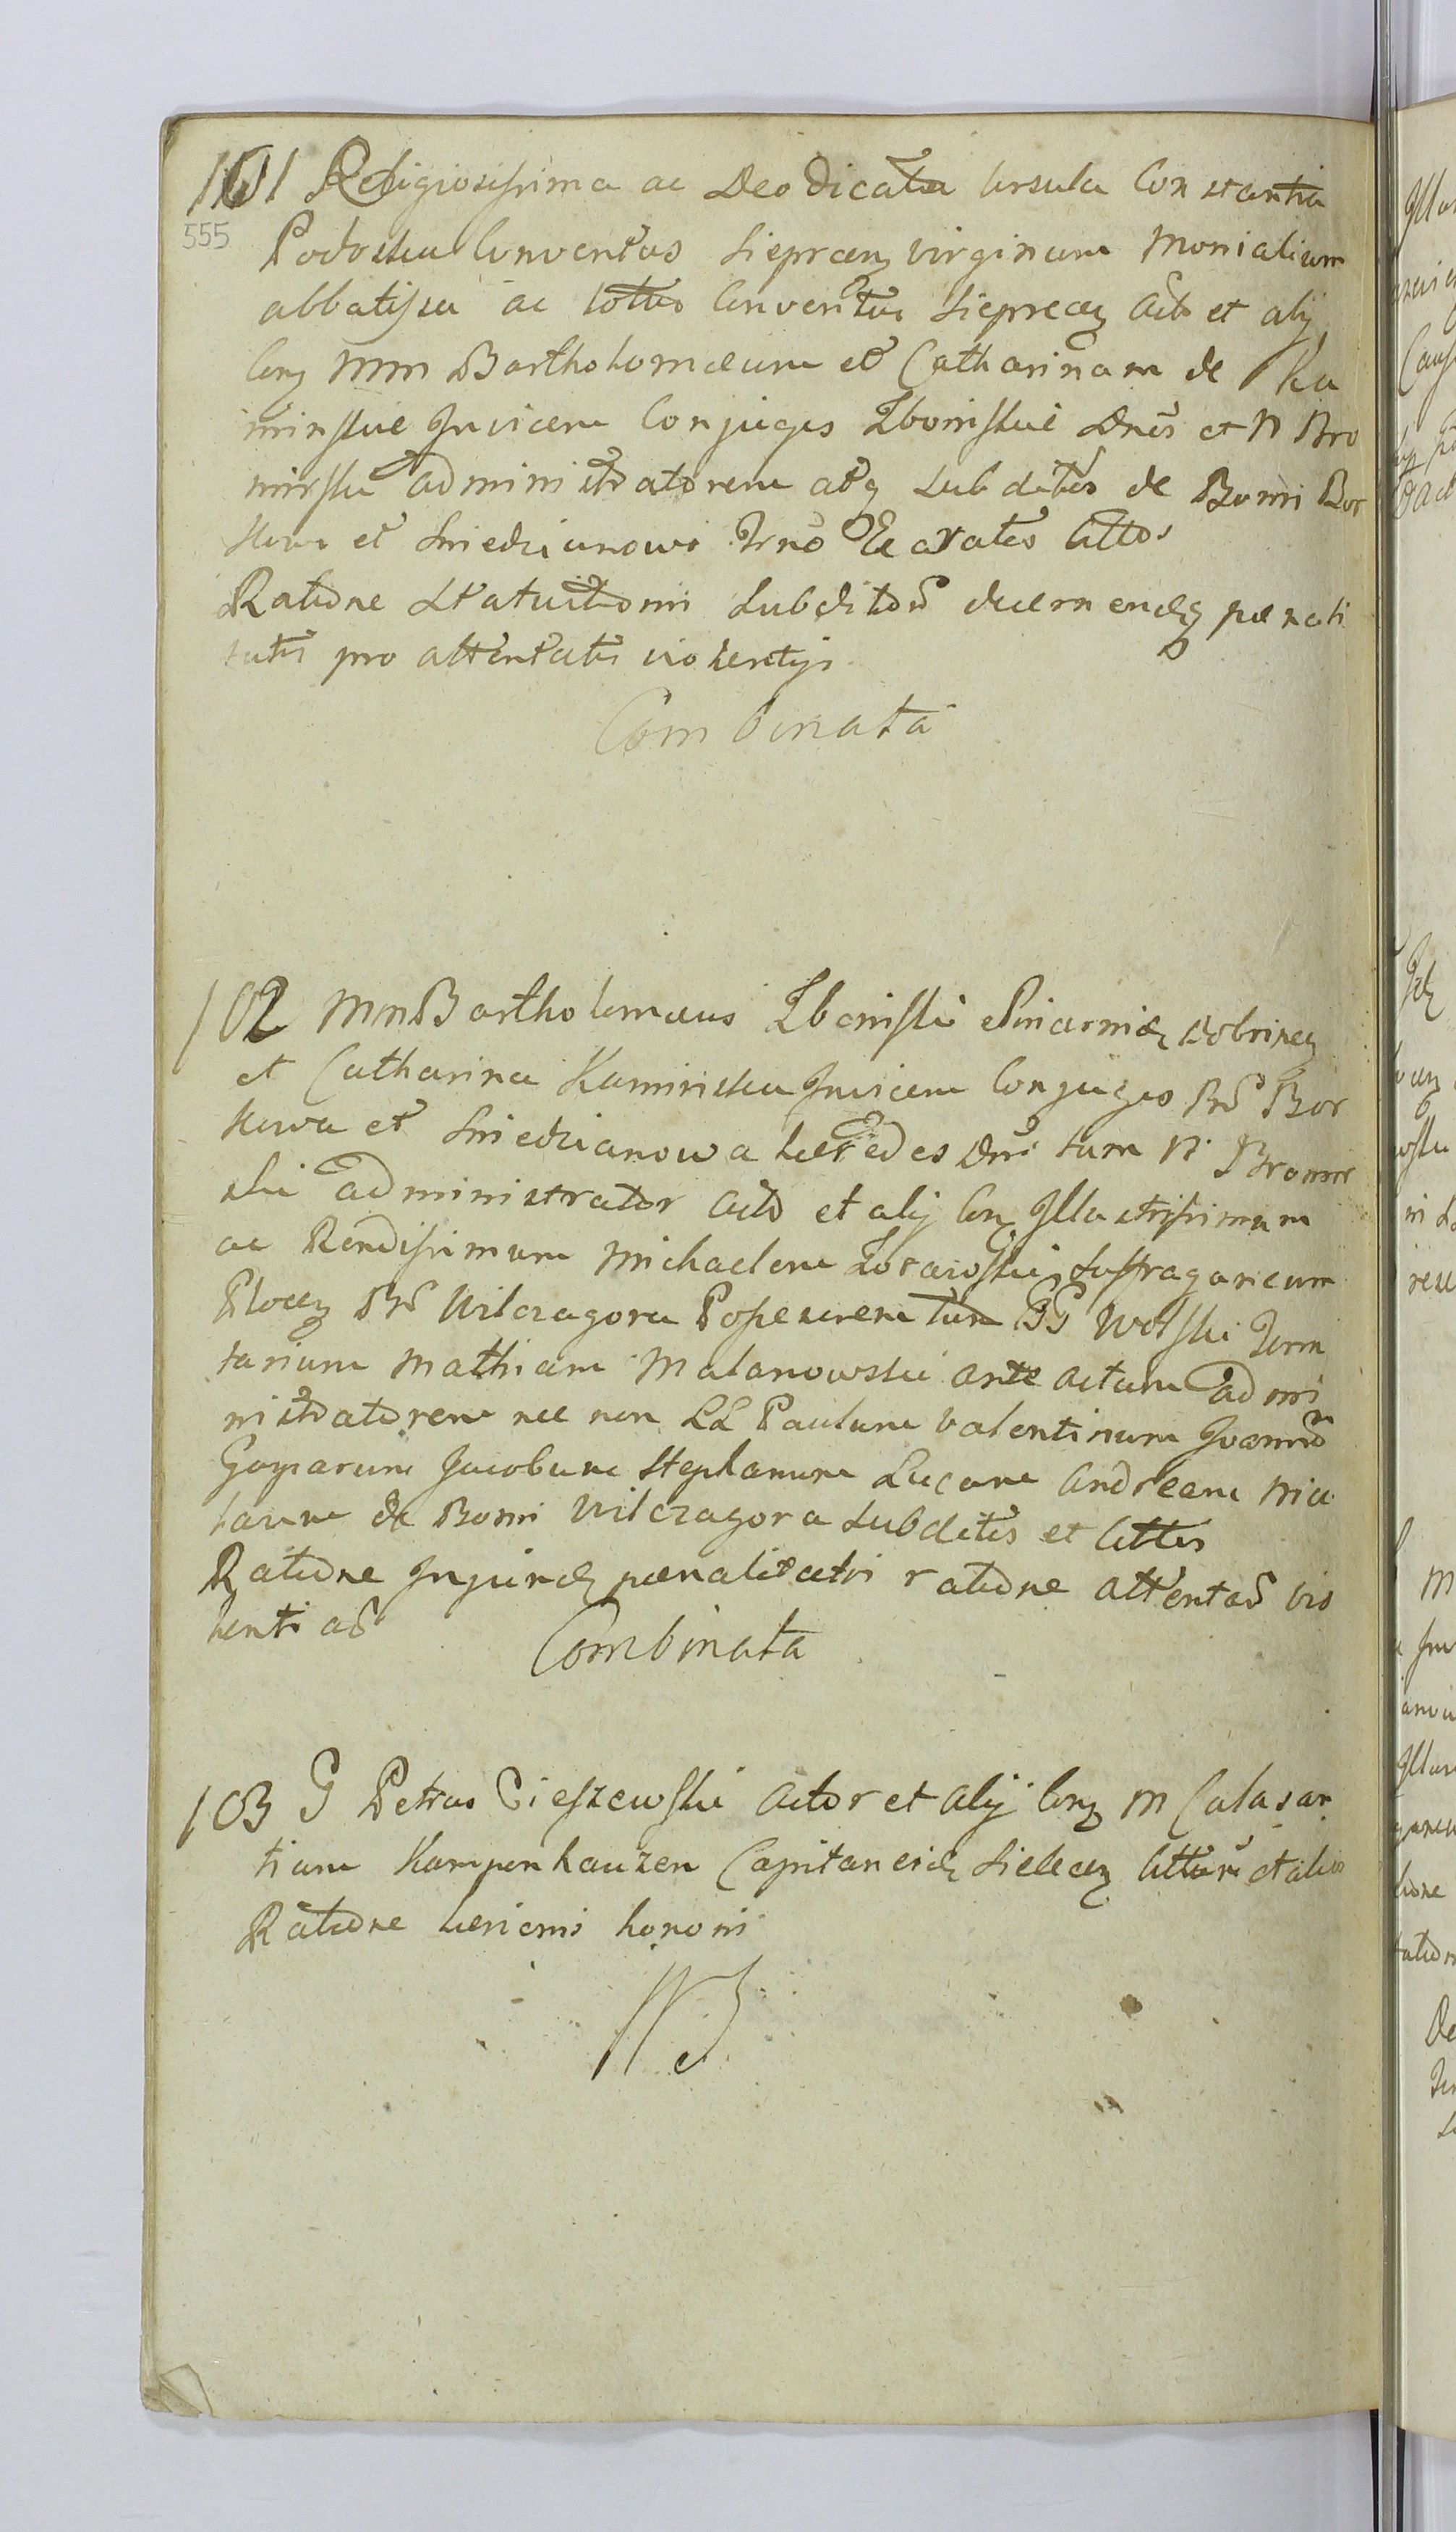 101 Religiosissima ac Deo Dicata Ursula Constantia
555
Podoska Conventus Sieprcen virginum Monialium
abbatissa ac totus Conventus Sieprcen act et alij
Con MM Bartholomæum et Catharinam de Ka
minskie Invicem Conjuges Zboinskie Dnos et N Bro
mirski administratorem atq subditos de Bonis Bor
kowo et Sniedzianowo Irno Exaratos Cittos
Ratione Statuitionis subditor decernendæ pænali
tatis pro attentatis violentijs
Combinata
102 MM Bartholomæus Zboinski Pincernid Dobrinen
et Catharina Kaminska Invicem Conjuges Bor Bor
kowa et Sniedzianowa hæredes Dni tum N Bromir
ski administrator act et alij Con Illustrissimum
ac Rendissimum Michaelem suffraganeum
Plocen Bor Wilczagora Possessorem tum GG Wolski
tarium Mathiam Malanowski ante actum admi
nistratorem nec non LL Paulum Valentinum Joannem
Gasparum Jacobum Stephanum Lucam Andream
de Bonis Wilczagora subditos et Cittos
Ratione pænalitatis ratione attentar vio
lentiar
Combinata
103 G Petrus Cieszewski actor et alij Con M Calasan
tium Kampenhauzen Capitaneid Sielecen Cittum et alios
Ratione læsionis honoris